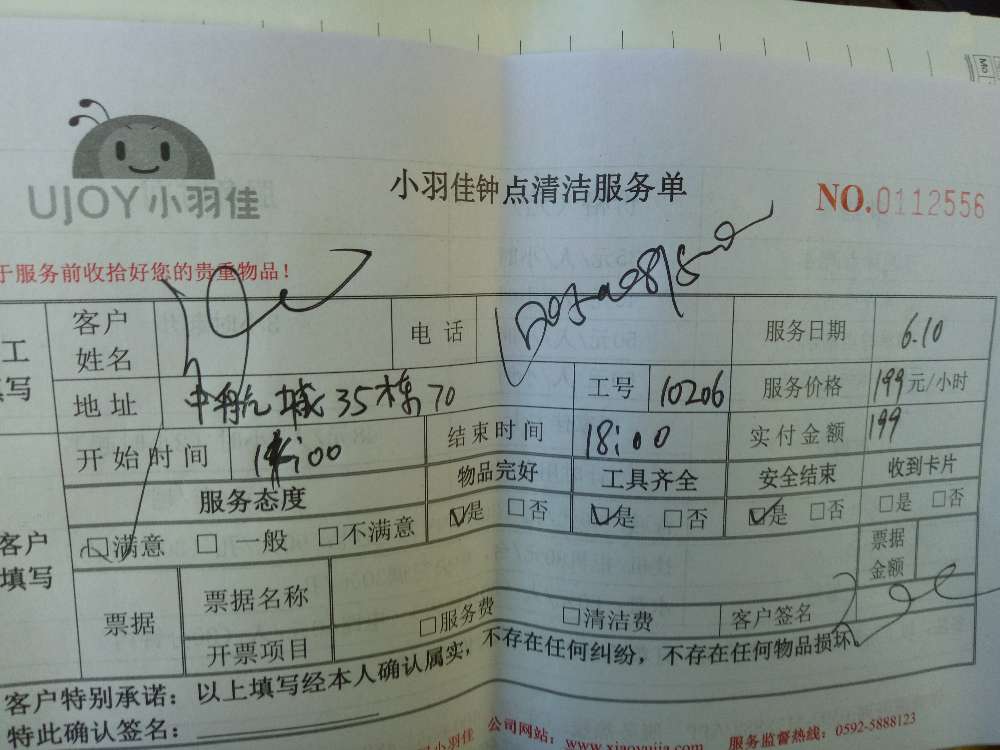 Mo
UJOY小羽佳
小羽佳钟点清洁服务单
NO.0112556
于服务前收拾好您的贵重物品！
工
写
客户
姓名
电 话
服务日期
6.10
地 址
中航城35栋70
工号
10206
服务价格
199元/小时
开始时间
14:00
结束时间
18:00
实付金额
199
客户
填写
服务态度
物品完好
工具齐全
安全结束
收到卡片
☑满意 □ 一般 □不满意
☑是 □否
☑是 □否
☑是 □否
□是 □否
票据
票据名称
票据
金额
开票项目
□服务费
□清洁费
客户签名
客户特别承诺：以上填写经本人确认属实，不存在任何纠纷，不存在任何物品损坏
特此确认签名：
小羽佳
公司网站：www.xiaoyujia.com
服务监督热线：0592-5888123